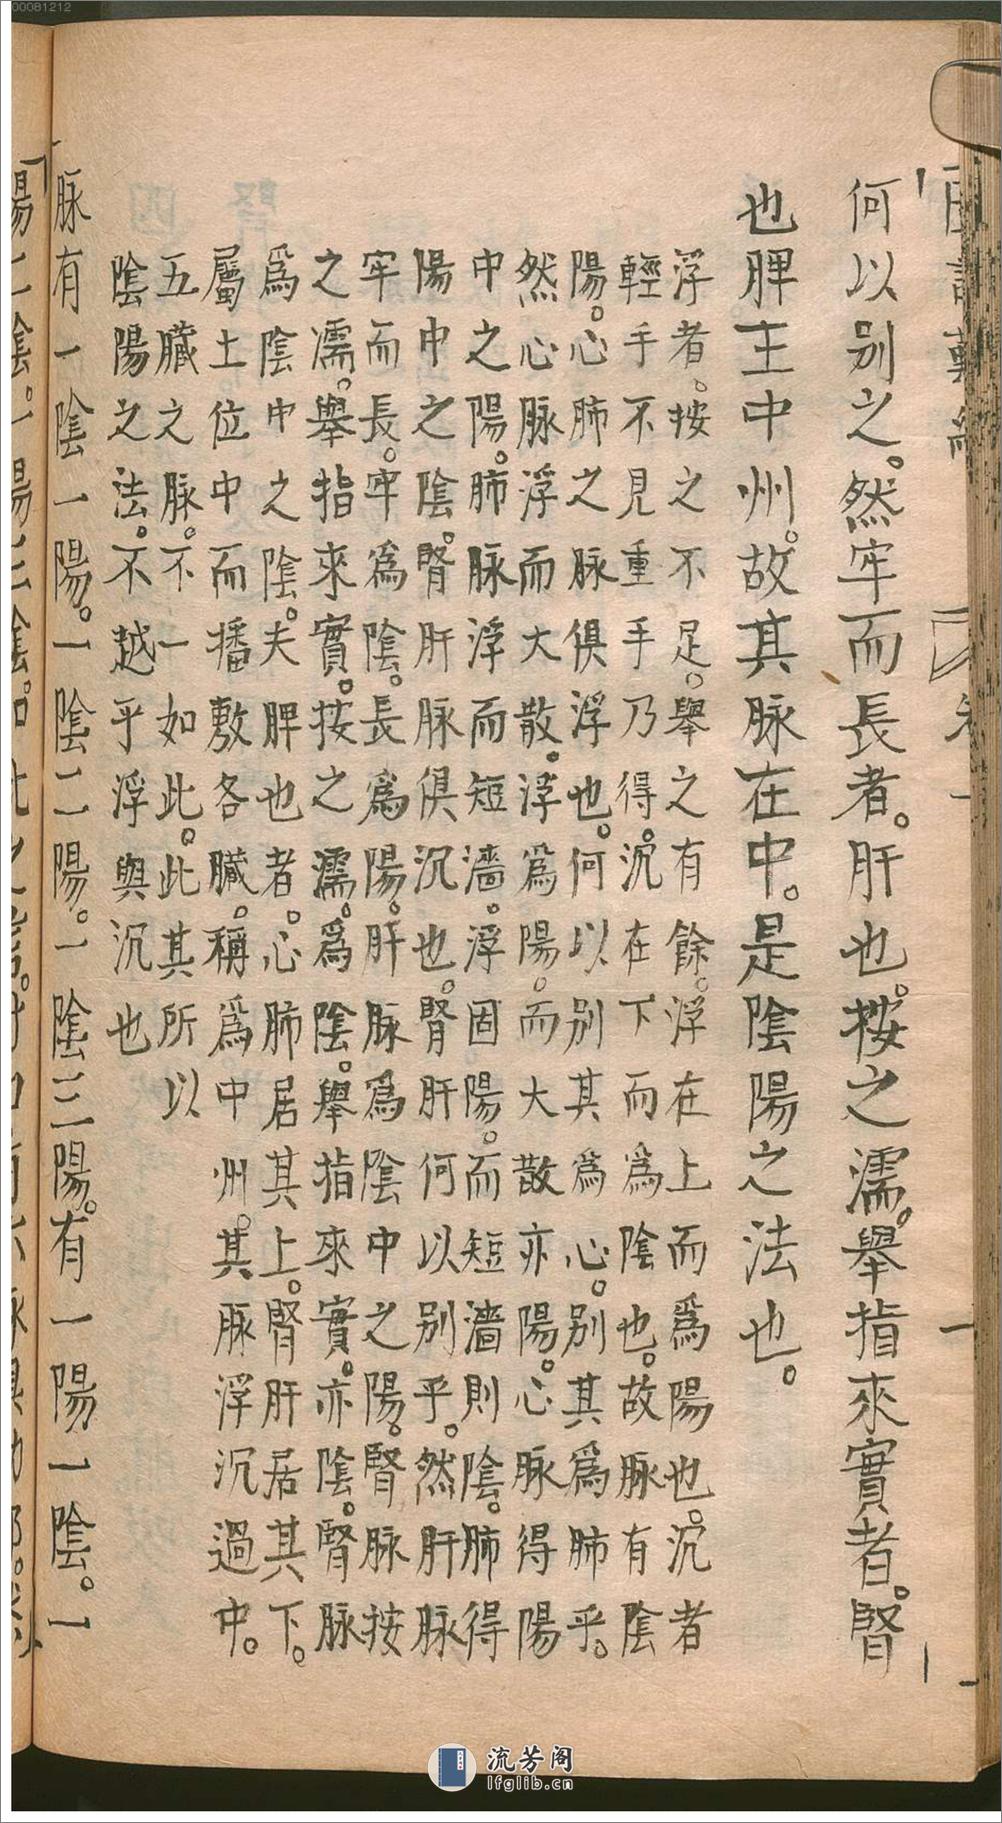 何以別之。然牢而長者。肝也。按之濡。舉指來實者。腎
也脾王中州。故其脉在中。是陰陽之法也。
浮者。按之不足。舉之有餘。浮在上而爲陽也。沉者
輕手不見重手乃得。沉在下而爲陰也。故脉有陰
陽。心肺之脉俱浮也。何以別其爲心。別其爲肺乎。
然心脉浮而大散。浮爲陽。而大散亦陽。心脉得陽
中之陽。肺脉浮而短濇。浮固陽。而短濇則陰。肺得
陽中之陰。腎肝脉俱沉也。腎肝何以別乎。然肝脉
牢而長。牢爲陰。長爲陽。肝脉爲陰中之陽。腎脉按
之濡。舉指來實。按之濡。爲陰。舉指來實。亦陰。腎脉
爲陰中之陰。夫脾也者。心肺居其上。腎肝居其下。
屬土位中而播敷各臟。稱爲中州。其脉浮沉過中。
五臟之脉。不一如此。此其所以
陰陽之法。不越乎浮與沉也
脉有一陰一陽。一陰二陽。一陰三陽。有一陽一陰。一
陽二陰。一陽三陰。
00081212
流芳阁
lfglib.cn